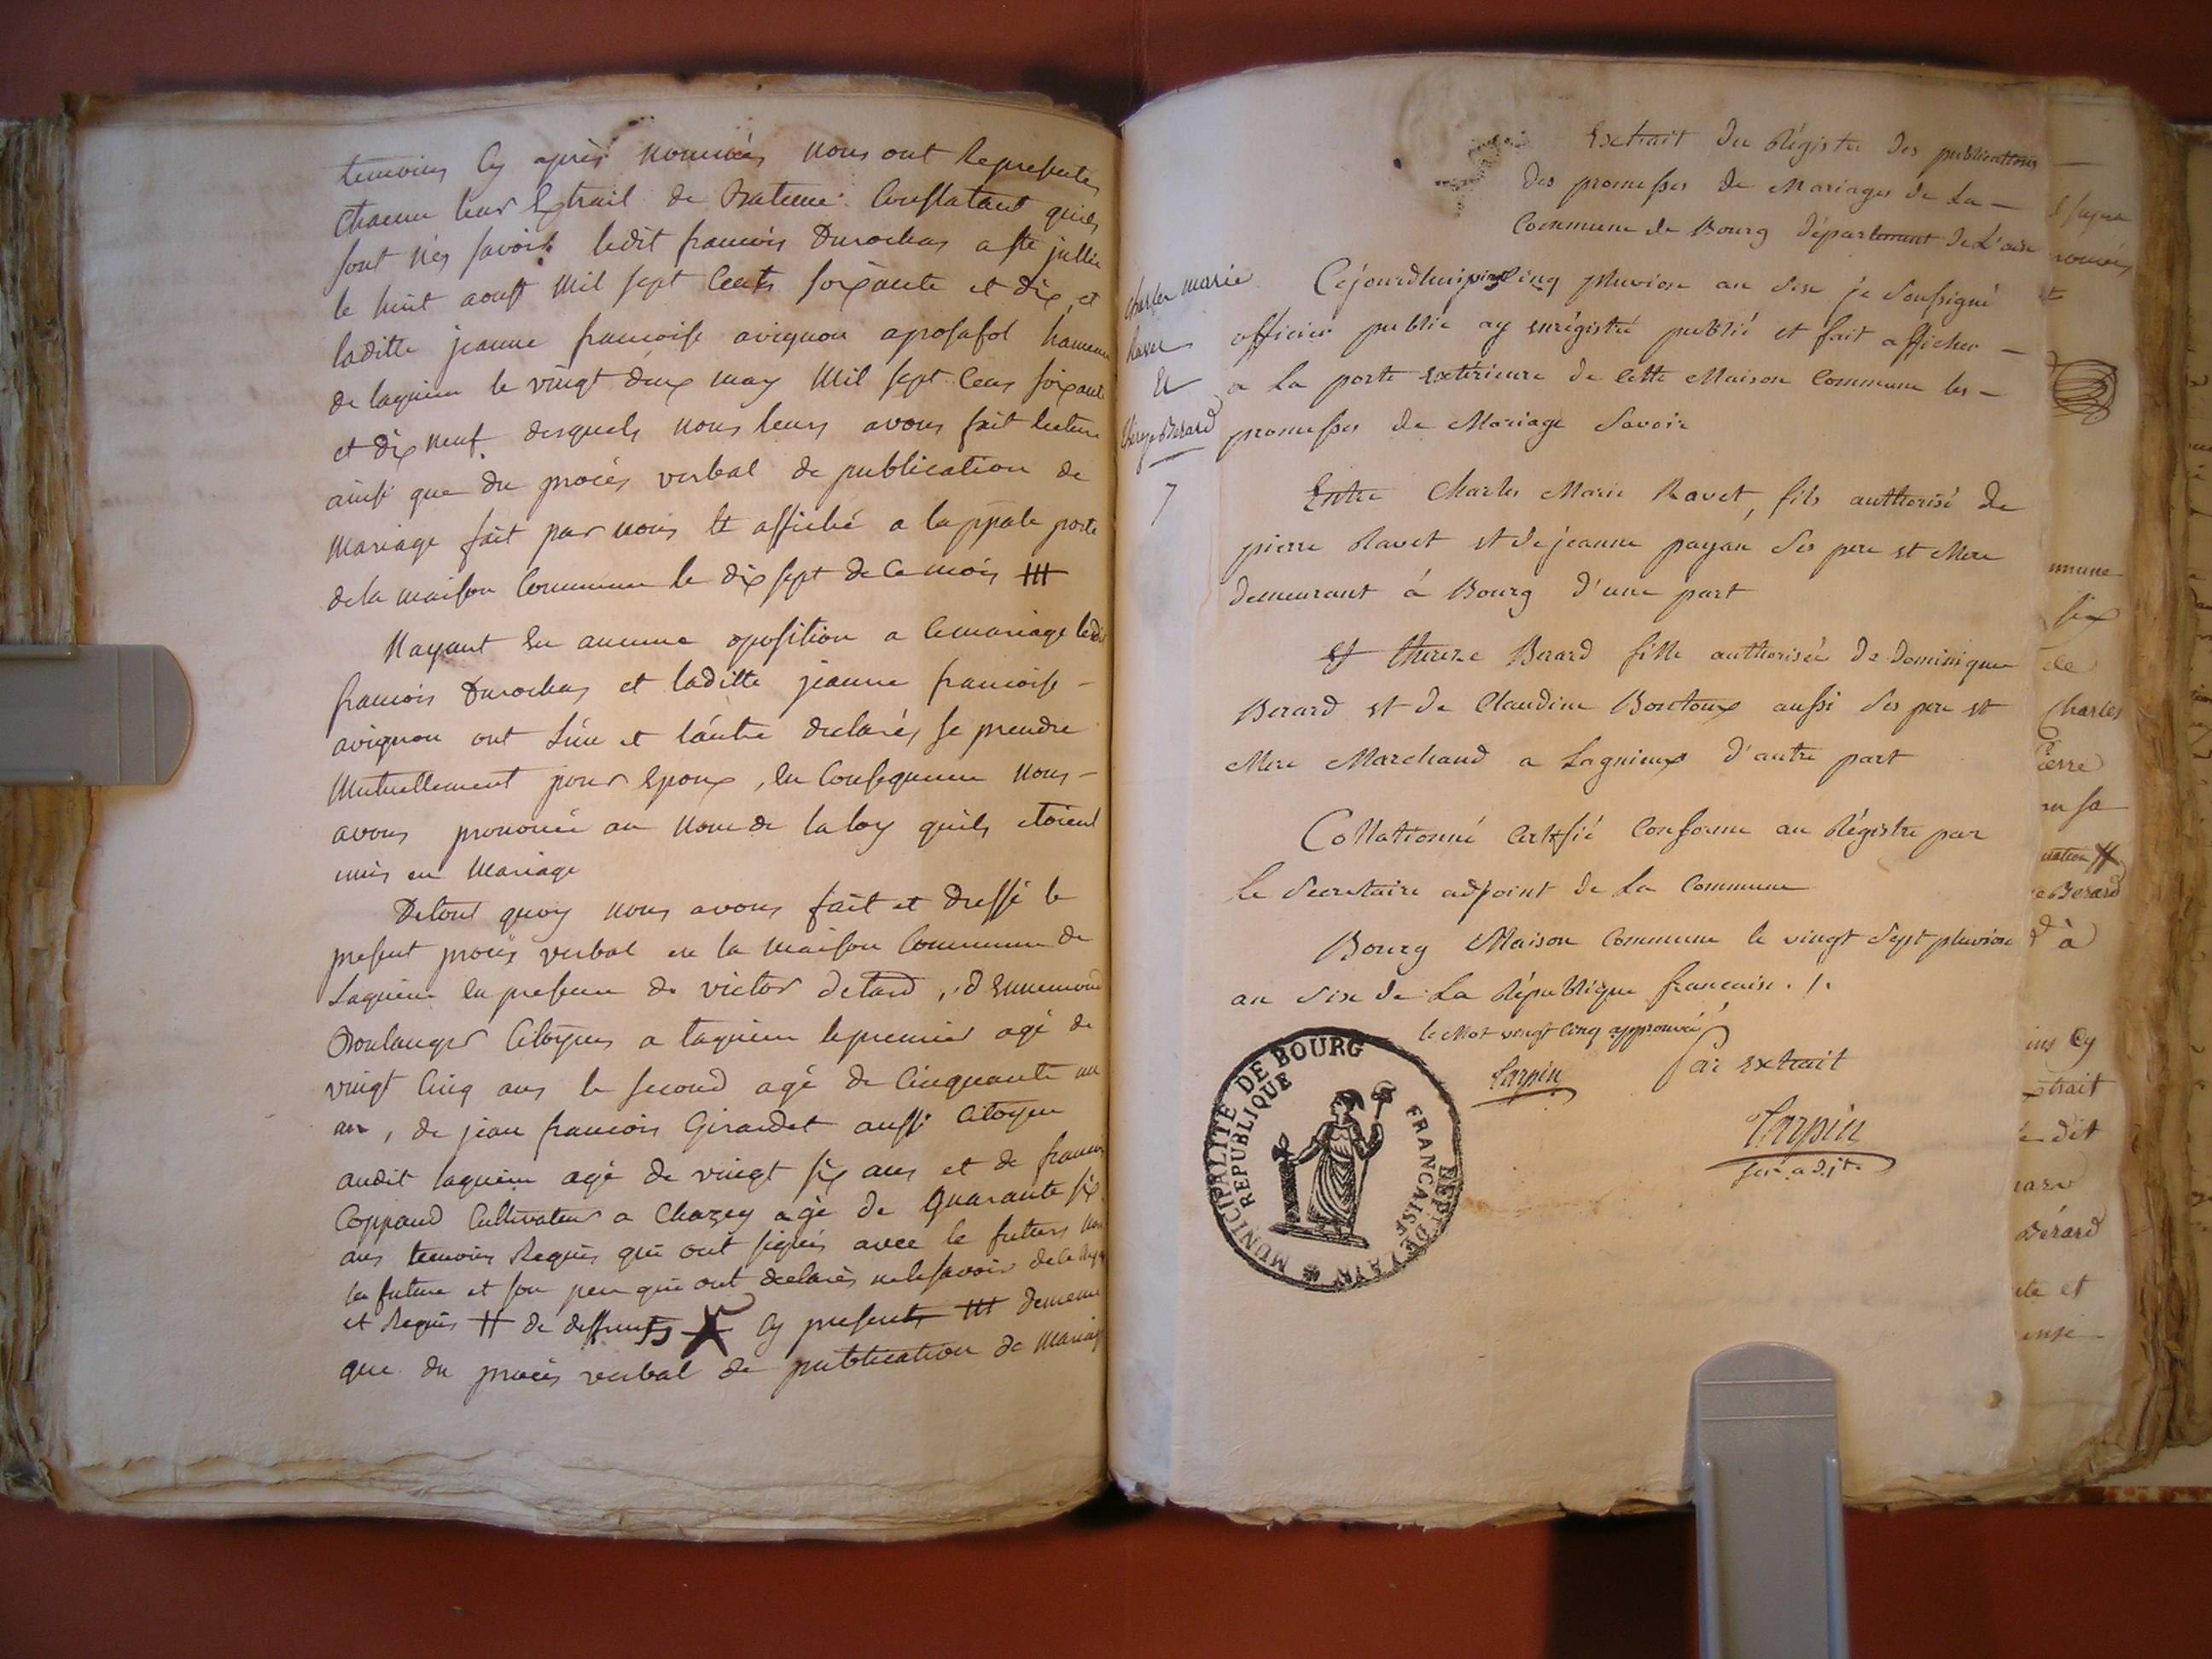 temoins Cy après nommés nous ont Represente
chacun leur Extrait de Bateme Constatant quils
sont nés savoir ledit francois Durochas a ste jullie
le huit aoust mil sept Cents soixante et dix et
laditte jeanne francoise avignon aposafol hameau
de lagnieu le vingt deux may mil sept Cens soixante
et dix neuf desquels nous leurs avons fait lecture
ainsi que du procés verbal de publication de
mariage fait par nous et affiché a la ppale porte
de la maison Commune le dix sept de ce mois
Nayant eu aucune oposition a ce mariage ledit
francois Durochas et laditte jeanne francoise -
avignon ont l'un et l'autre declarés se prendre
mutuellement pour Epoux, en Consequence nous -
avons prononcé au nom de la loy quils etoient
unis en mariage
De tout quoy nous avons fait et dressé le
present procés verbal en la maison Commune de
Lagnieu en presence de victor detard, d'ennemond
Boulanger Citoyens a lagnieu le premier agé de
vingt Cinq ans le second agé de Cinquante un
ans, de jean francois Girardet aussi Citoyen
audit lagnieu agé de vingt six ans et de francois
Coppand Cultivateur a Chazey agé de quarante six
ans temoins Requis qui ont signés avec le futur non
la future et son pere qui ont declarés ne le savoir de ce
et Requis de deffunts Cy presents demeure
que du procés verbal de publication de mariage
Extrait du Régistre des publications
des promesses de Mariages de La -
Commune de Bourg département de L'ain
Charles marie
Ravet
Et
Therese Berard
7
Cejourdhui vingt Cinq pluviose an Six je Soussigné
officier public ay enrégistré publié et fait afficher -
a La porte extérieure de cette Maison Commune les -
promesses de Mariage Savoir
Entre Charles Marie Ravet, fils authorisé de
pierre Ravet et de jeanne payan Ses pere et Mere
demeurant á Bourg d'une part
Et thereze Berard fille authorisée de Dominique
Berard et de Claudine Bontoux aussi Ses pere et
Mere Marchand a Lagnieux d'autre part
Collationné Certifié Conforme au Régistre par
le Secretaire adjoint de La Commune
Bourg Maison Commune le vingt Sept pluviose
an Six de La République francaise ./.
le Mot vingt Cinq approuvé
Carpin
Par extrait
Carpin
secre adjt.
MUNICIPALITE DE BOURG
DEPT DE L'AIN
REPUBLIQUE FRANCAISE
mmune
six
de
Charles
Pierre
e Berard
à
ins Cy
extrait
dit
Bérard
te et